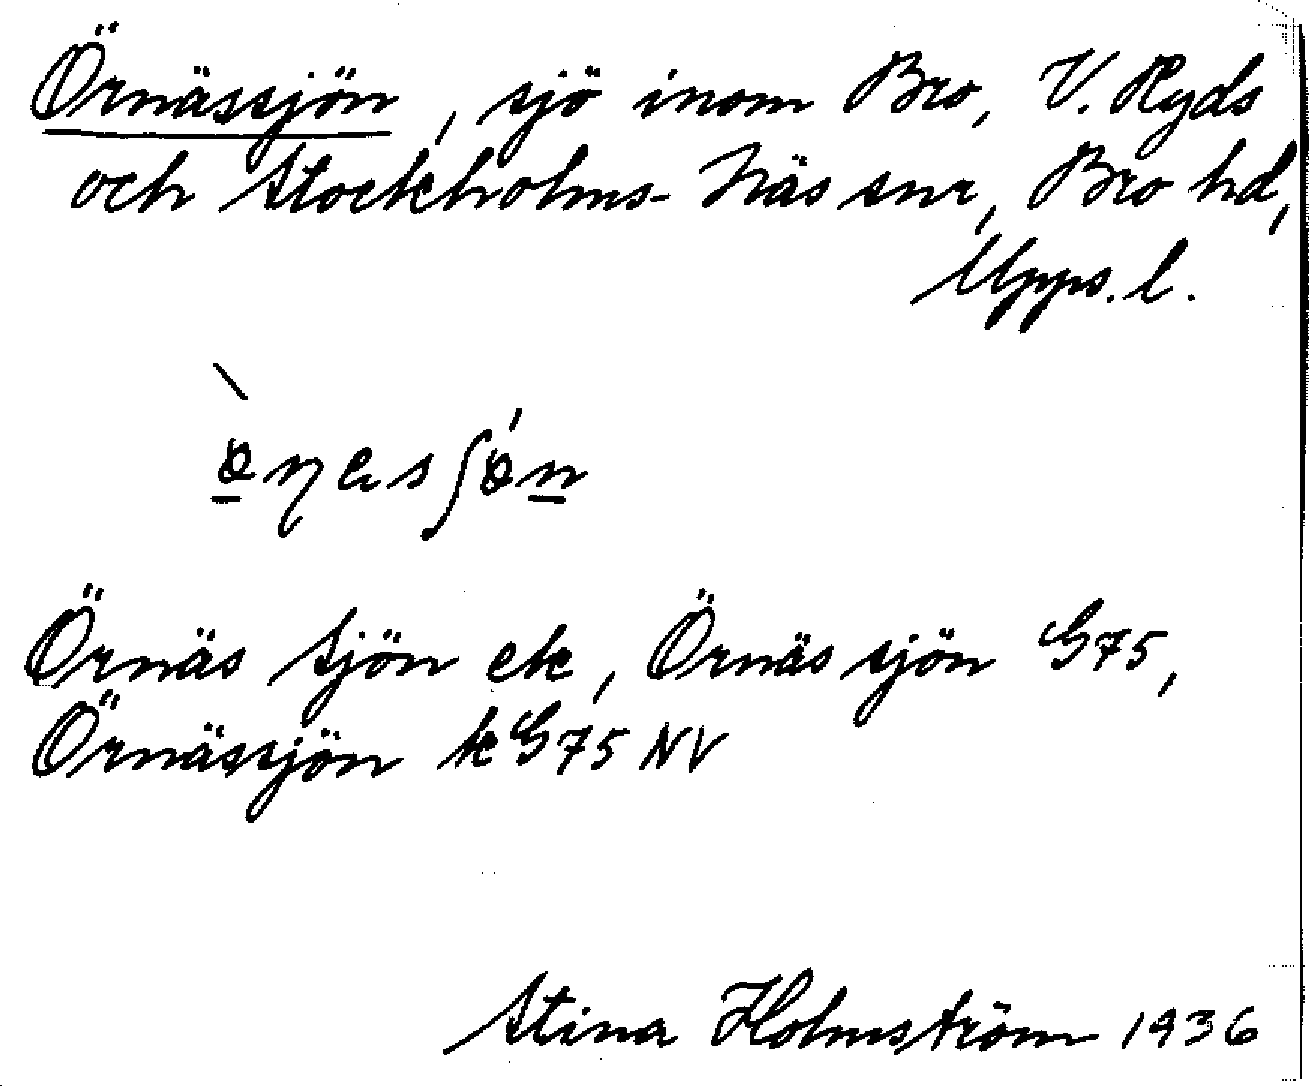 Örnässjön, sjö inom Bro, V. Ryds
och Stockholms-Näs snr, Bro hd,
Upps. l.
Örnäs Sjön ek, Örnäs sjön G75,
Örnässjön kG75 NV
Stina Holmström 1936